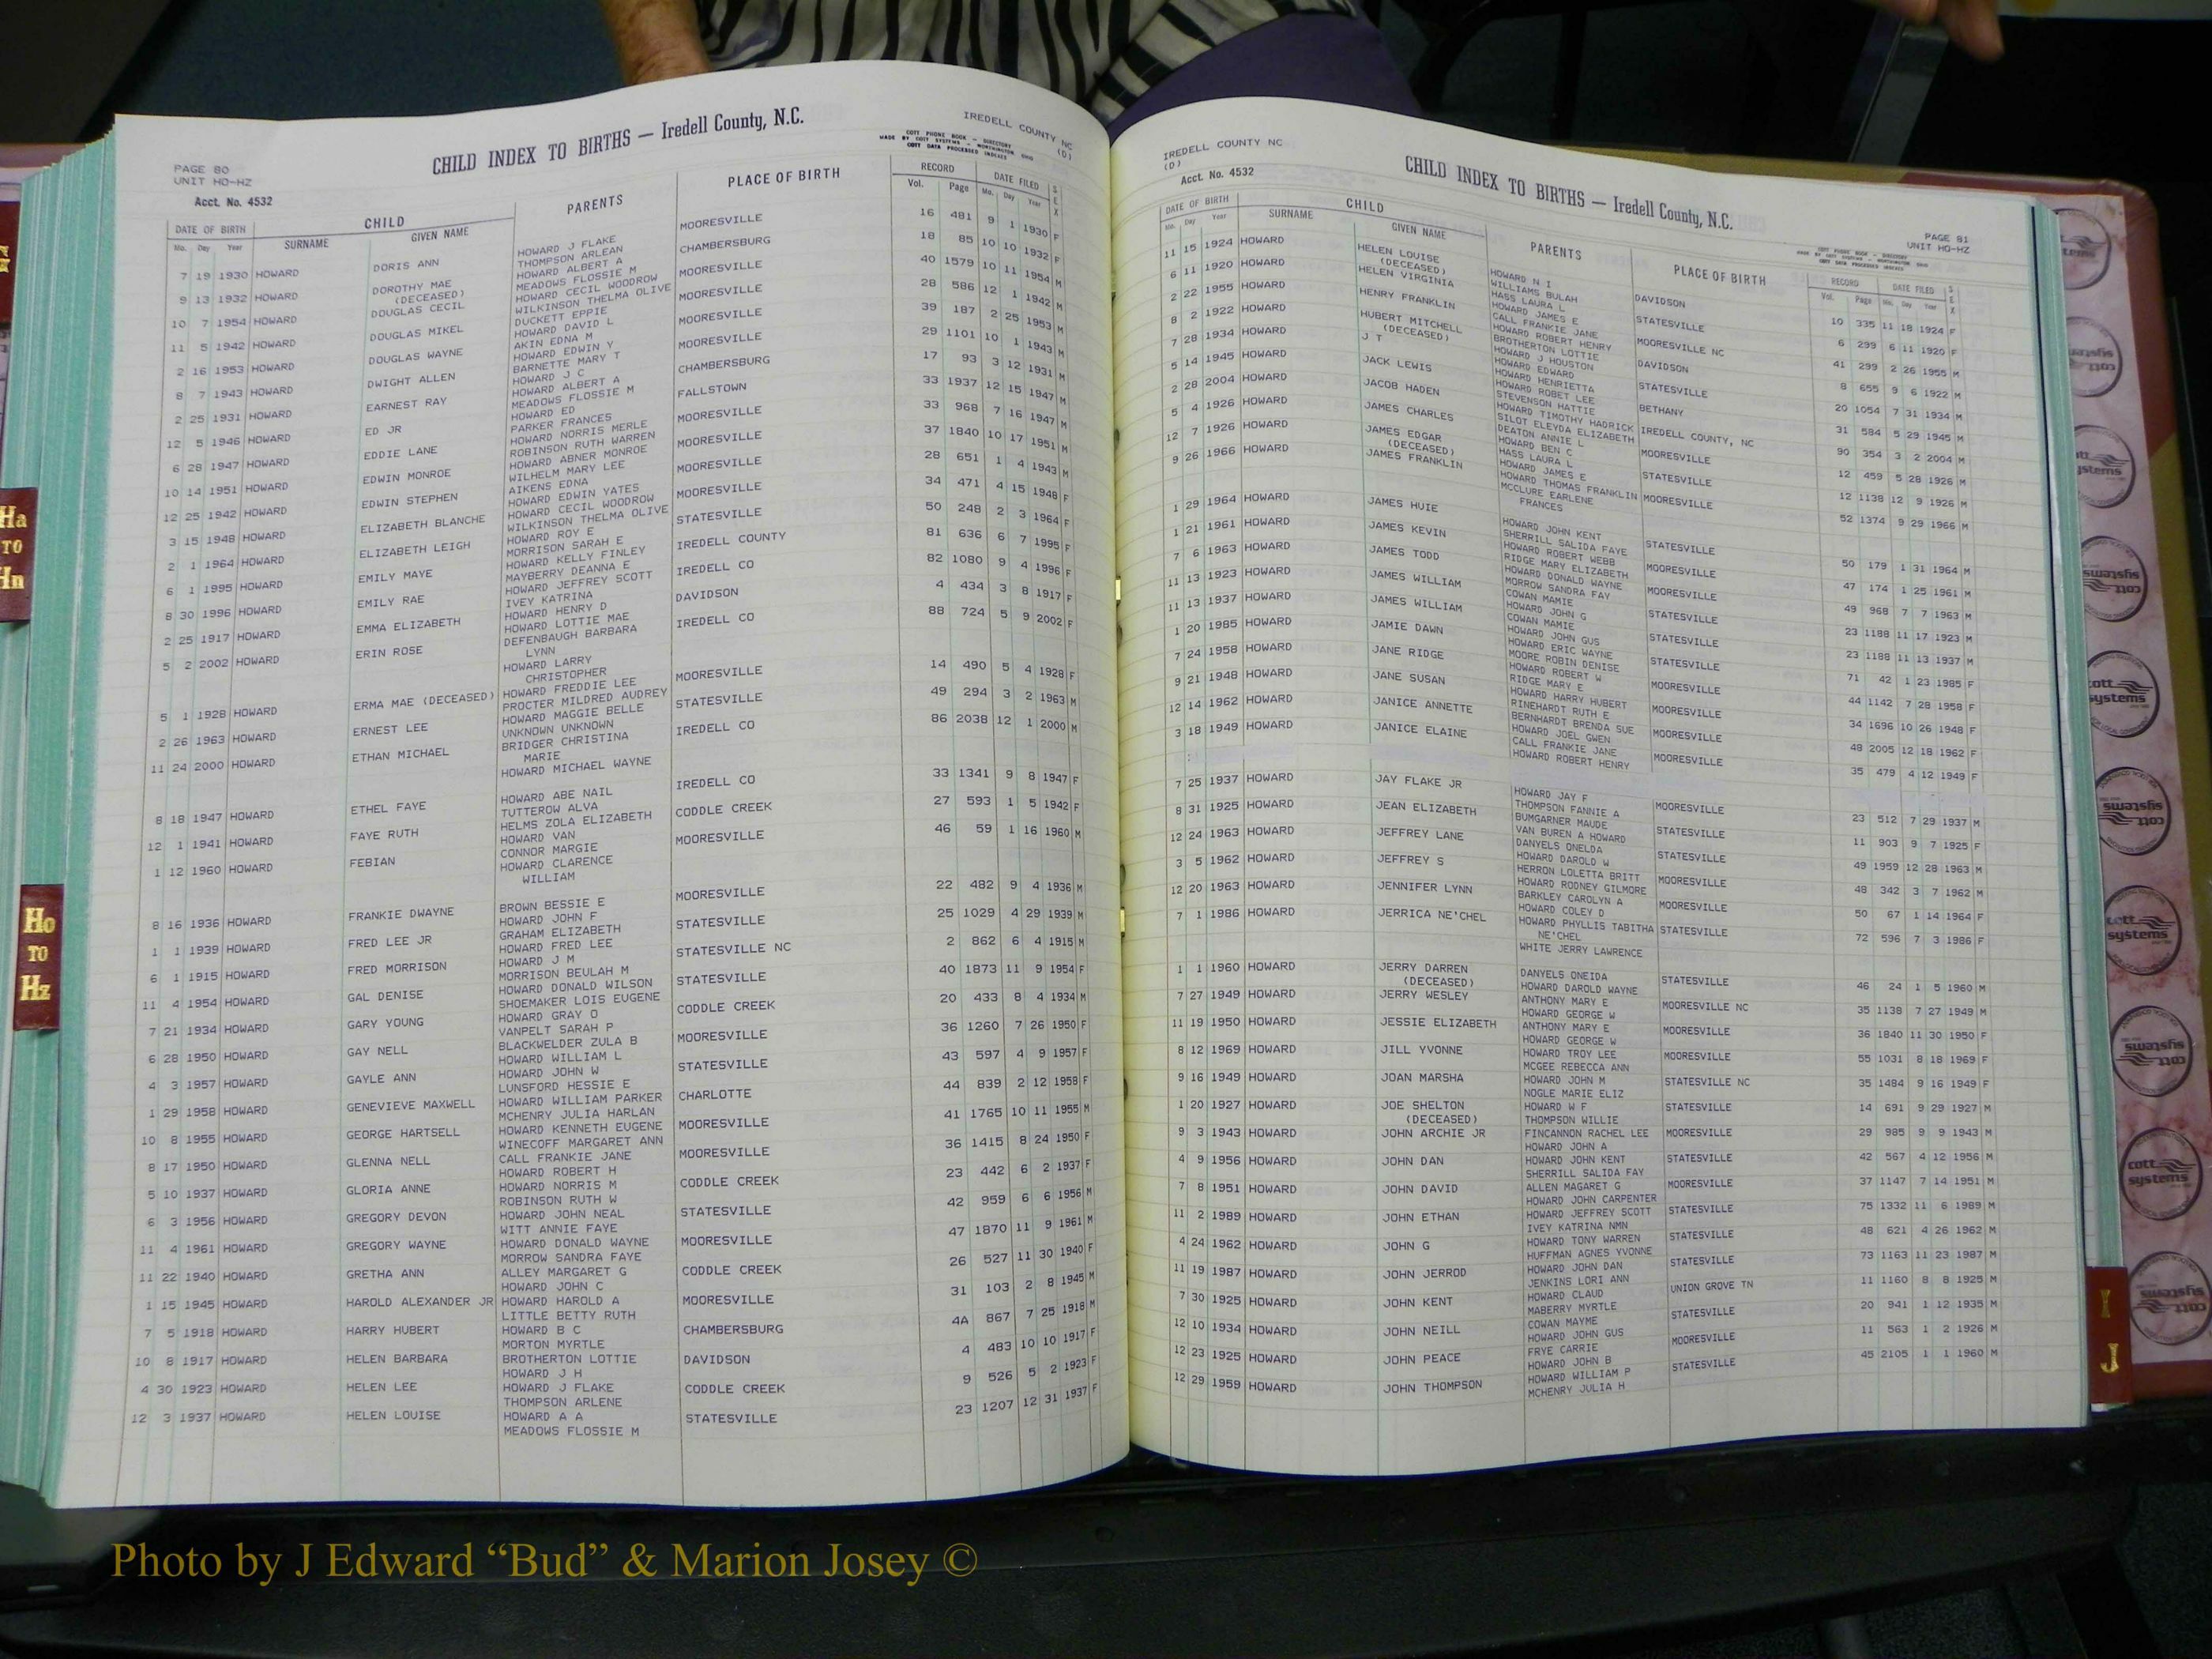 CHILD INDEX TO BIRTHS — Iredell County, N.C.
IREDELL COUNTY NC
(D)
COTT PHONE BOOK - DIRECTORY
MADE BY COTT SYSTEMS - WORTHINGTON OHIO
COTT DATA PROCESSED INDEXES
PAGE 80
UNIT HO-HZ
Acct. No. 4532
DATE OF BIRTH CHILD PARENTS PLACE OF BIRTH RECORD DATE FILED SEX
Mo. Day Year SURNAME GIVEN NAME Vol. Page Mo. Day Year
7 19 1930 HOWARD DORIS ANN HOWARD J FLAKE MOORESVILLE 16 481 9 1 1930 F
THOMPSON ARLEAN
9 13 1932 HOWARD DOROTHY MAE HOWARD ALBERT A CHAMBERSBURG 18 85 10 10 1932 F
(DECEASED) MEADOWS FLOSSIE M
10 7 1954 HOWARD DOUGLAS CECIL HOWARD CECIL WOODROW MOORESVILLE 40 1579 10 11 1954 M
WILKINSON THELMA OLIVE
11 5 1942 HOWARD DOUGLAS MIKEL DUCKETT EPPIE MOORESVILLE 28 586 12 1 1942 M
HOWARD DAVID L
2 16 1953 HOWARD DOUGLAS WAYNE AKIN EDNA M MOORESVILLE 39 187 2 25 1953 M
HOWARD EDWIN Y
8 7 1943 HOWARD DWIGHT ALLEN BARNETTE MARY T MOORESVILLE 29 1101 10 1 1943 M
HOWARD J C
2 25 1931 HOWARD EARNEST RAY HOWARD ALBERT A CHAMBERSBURG 17 93 3 12 1931 M
MEADOWS FLOSSIE M
12 5 1946 HOWARD ED JR HOWARD ED FALLSTOWN 33 1937 12 15 1947 M
PARKER FRANCES
6 28 1947 HOWARD EDDIE LANE HOWARD NORRIS MERLE MOORESVILLE 33 968 7 16 1947 M
ROBINSON RUTH WARREN
10 14 1951 HOWARD EDWIN MONROE HOWARD ABNER MONROE MOORESVILLE 37 1840 10 17 1951 M
WILHELM MARY LEE
12 25 1942 HOWARD EDWIN STEPHEN AIKENS EDNA MOORESVILLE 28 651 1 4 1943 M
HOWARD EDWIN YATES
3 15 1948 HOWARD ELIZABETH BLANCHE HOWARD CECIL WOODROW MOORESVILLE 34 471 4 15 1948 F
WILKINSON THELMA OLIVE
2 1 1964 HOWARD ELIZABETH LEIGH HOWARD ROY E STATESVILLE 50 248 2 3 1964 F
MORRISON SARAH E
6 1 1995 HOWARD EMILY MAYE HOWARD KELLY FINLEY IREDELL COUNTY 81 636 6 7 1995 F
MAYBERRY DEANNA E
8 30 1996 HOWARD EMILY RAE HOWARD JEFFREY SCOTT IREDELL CO 82 1080 9 4 1996 F
IVEY KATRINA
2 25 1917 HOWARD EMMA ELIZABETH HOWARD HENRY D DAVIDSON 4 434 3 8 1917 F
HOWARD LOTTIE MAE
5 2 2002 HOWARD ERIN ROSE DEFENBAUGH BARBARA IREDELL CO 88 724 5 9 2002 F
LYNN
HOWARD LARRY
CHRISTOPHER
5 1 1928 HOWARD ERMA MAE (DECEASED) HOWARD FREDDIE LEE MOORESVILLE 14 490 5 4 1928 F
PROCTER MILDRED AUDREY
2 26 1963 HOWARD ERNEST LEE HOWARD MAGGIE BELLE STATESVILLE 49 294 3 2 1963 M
UNKNOWN UNKNOWN
11 24 2000 HOWARD ETHAN MICHAEL BRIDGER CHRISTINA IREDELL CO 86 2038 12 1 2000 M
MARIE
HOWARD MICHAEL WAYNE
8 18 1947 HOWARD ETHEL FAYE HOWARD ABE NAIL IREDELL CO 33 1341 9 8 1947 F
TUTTEROW ALVA
12 1 1941 HOWARD FAYE RUTH HELMS ZOLA ELIZABETH CODDLE CREEK 27 593 1 5 1942 F
HOWARD VAN
1 12 1960 HOWARD FEBIAN CONNOR MARGIE MOORESVILLE 46 59 1 16 1960 M
HOWARD CLARENCE
WILLIAM
8 16 1936 HOWARD FRANKIE DWAYNE BROWN BESSIE E MOORESVILLE 22 482 9 4 1936 M
HOWARD JOHN F
1 1 1939 HOWARD FRED LEE JR GRAHAM ELIZABETH STATESVILLE 25 1029 4 29 1939 M
HOWARD FRED LEE
6 1 1915 HOWARD FRED MORRISON HOWARD J M STATESVILLE NC 2 862 6 4 1915 M
MORRISON BEULAH M
11 4 1954 HOWARD GAL DENISE HOWARD DONALD WILSON STATESVILLE 40 1873 11 9 1954 F
SHOEMAKER LOIS EUGENE
7 21 1934 HOWARD GARY YOUNG HOWARD GRAY O CODDLE CREEK 20 433 8 4 1934 M
VANPELT SARAH P
6 28 1950 HOWARD GAY NELL BLACKWELDER ZULA B MOORESVILLE 36 1260 7 26 1950 F
HOWARD WILLIAM L
4 3 1957 HOWARD GAYLE ANN HOWARD JOHN W STATESVILLE 43 597 4 9 1957 F
LUNSFORD HESSIE E
1 29 1958 HOWARD GENEVIEVE MAXWELL HOWARD WILLIAM PARKER CHARLOTTE 44 839 2 12 1958 F
MCHENRY JULIA HARLAN
10 8 1955 HOWARD GEORGE HARTSELL HOWARD KENNETH EUGENE MOORESVILLE 41 1765 10 11 1955 M
WINECOFF MARGARET ANN
8 17 1950 HOWARD GLENNA NELL CALL FRANKIE JANE MOORESVILLE 36 1415 8 24 1950 F
HOWARD ROBERT H
5 10 1937 HOWARD GLORIA ANNE HOWARD NORRIS M CODDLE CREEK 23 442 6 2 1937 F
ROBINSON RUTH W
6 3 1956 HOWARD GREGORY DEVON HOWARD JOHN NEAL STATESVILLE 42 959 6 6 1956 M
WITT ANNIE FAYE
11 4 1961 HOWARD GREGORY WAYNE HOWARD DONALD WAYNE MOORESVILLE 47 1870 11 9 1961 M
MORROW SANDRA FAYE
11 22 1940 HOWARD GRETHA ANN ALLEY MARGARET G CODDLE CREEK 26 527 11 30 1940 F
HOWARD JOHN C
1 15 1945 HOWARD HAROLD ALEXANDER JR HOWARD HAROLD A MOORESVILLE 31 103 2 8 1945 M
LITTLE BETTY RUTH
7 5 1918 HOWARD HARRY HUBERT HOWARD B C CHAMBERSBURG 4A 867 7 25 1918 M
MORTON MYRTLE
10 8 1917 HOWARD HELEN BARBARA BROTHERTON LOTTIE DAVIDSON 4 483 10 10 1917 F
HOWARD J H
4 30 1923 HOWARD HELEN LEE HOWARD J FLAKE CODDLE CREEK 9 526 5 2 1923 F
THOMPSON ARLENE
12 3 1937 HOWARD HELEN LOUISE HOWARD A A STATESVILLE 23 1207 12 31 1937 F
MEADOWS FLOSSIE M
IREDELL COUNTY NC
(D)
Acct. No. 4532
CHILD INDEX TO BIRTHS — Iredell County, N.C.
PAGE 81
UNIT HO-HZ
COTT PHONE BOOK - DIRECTORY
MADE BY COTT SYSTEMS - WORTHINGTON OHIO
COTT DATA PROCESSED INDEXES
DATE OF BIRTH CHILD PARENTS PLACE OF BIRTH RECORD DATE FILED SEX
Mo. Day Year SURNAME GIVEN NAME Vol. Page Mo. Day Year
11 15 1924 HOWARD HELEN LOUISE HOWARD N I DAVIDSON 10 335 11 18 1924 F
(DECEASED) WILLIAMS BULAH
6 11 1920 HOWARD HELEN VIRGINIA HASS LAURA L STATESVILLE 6 299 6 11 1920 F
HOWARD JAMES E
2 22 1955 HOWARD HENRY FRANKLIN CALL FRANKIE JANE MOORESVILLE NC 41 299 2 26 1955 M
HOWARD ROBERT HENRY
8 2 1922 HOWARD HUBERT MITCHELL BROTHERTON LOTTIE DAVIDSON 8 655 9 6 1922 M
(DECEASED) HOWARD J HOUSTON
7 28 1934 HOWARD J T HOWARD EDWARD STATESVILLE 20 1054 7 31 1934 M
HOWARD HENRIETTA
5 14 1945 HOWARD JACK LEWIS HOWARD ROBET LEE BETHANY 31 584 5 29 1945 M
STEVENSON HATTIE
2 28 2004 HOWARD JACOB HADEN HOWARD TIMOTHY HADRICK IREDELL COUNTY, NC 90 354 3 2 2004 M
SILOT ELEYDA ELIZABETH
5 4 1926 HOWARD JAMES CHARLES DEATON ANNIE L MOORESVILLE 12 459 5 28 1926 M
HOWARD BEN C
12 7 1926 HOWARD JAMES EDGAR HASS LAURA L STATESVILLE 12 1138 12 9 1926 M
(DECEASED) HOWARD JAMES E
9 26 1966 HOWARD JAMES FRANKLIN HOWARD THOMAS FRANKLIN MOORESVILLE 52 1374 9 29 1966 M
MCCLURE EARLENE
FRANCES
1 29 1964 HOWARD JAMES HUIE HOWARD JOHN KENT STATESVILLE 50 179 1 31 1964 M
SHERRILL SALIDA FAYE
1 21 1961 HOWARD JAMES KEVIN HOWARD ROBERT WEBB MOORESVILLE 47 174 1 25 1961 M
RIDGE MARY ELIZABETH
7 6 1963 HOWARD JAMES TODD HOWARD DONALD WAYNE MOORESVILLE 49 968 7 7 1963 M
MORROW SANDRA FAY
11 13 1923 HOWARD JAMES WILLIAM COWAN MAMIE STATESVILLE 23 1188 11 17 1923 M
HOWARD JOHN G
11 13 1937 HOWARD JAMES WILLIAM COWAN MAMIE STATESVILLE 23 1188 11 13 1937 M
HOWARD JOHN GUS
1 20 1985 HOWARD JAMIE DAWN HOWARD ERIC WAYNE STATESVILLE 71 42 1 23 1985 F
MOORE ROBIN DENISE
7 24 1958 HOWARD JANE RIDGE HOWARD ROBERT W MOORESVILLE 44 1142 7 28 1958 F
RIDGE MARY E
9 21 1948 HOWARD JANE SUSAN HOWARD HARRY HUBERT MOORESVILLE 34 1696 10 26 1948 F
RINEHARDT RUTH E
12 14 1962 HOWARD JANICE ANNETTE BERNHARDT BRENDA SUE MOORESVILLE 48 2005 12 18 1962 F
HOWARD JOEL GWEN
3 18 1949 HOWARD JANICE ELAINE CALL FRANKIE JANE MOORESVILLE 35 479 4 12 1949 F
HOWARD ROBERT HENRY
7 25 1937 HOWARD JAY FLAKE JR HOWARD JAY F MOORESVILLE 23 512 7 29 1937 M
THOMPSON FANNIE A
8 31 1925 HOWARD JEAN ELIZABETH BUMGARNER MAUDE STATESVILLE 11 903 9 7 1925 F
VAN BUREN A HOWARD
12 24 1963 HOWARD JEFFREY LANE DANYELS ONELDA STATESVILLE 49 1959 12 28 1963 M
HOWARD DAROLD W
3 5 1962 HOWARD JEFFREY S HERRON LOLETTA BRITT MOORESVILLE 48 342 3 7 1962 M
HOWARD RODNEY GILMORE
12 20 1963 HOWARD JENNIFER LYNN BARKLEY CAROLYN A MOORESVILLE 50 67 1 14 1964 F
HOWARD COLEY D
7 1 1986 HOWARD JERRICA NE'CHEL HOWARD PHYLLIS TABITHA STATESVILLE 72 596 7 3 1986 F
NE'CHEL
WHITE JERRY LAWRENCE
1 1 1960 HOWARD JERRY DARREN DANYELS ONEIDA STATESVILLE 46 24 1 5 1960 M
(DECEASED) HOWARD DAROLD WAYNE
7 27 1949 HOWARD JERRY WESLEY ANTHONY MARY E MOORESVILLE NC 35 1138 7 27 1949 M
HOWARD GEORGE W
11 19 1950 HOWARD JESSIE ELIZABETH ANTHONY MARY E MOORESVILLE 36 1840 11 30 1950 F
HOWARD GEORGE W
8 12 1969 HOWARD JILL YVONNE HOWARD TROY LEE MOORESVILLE 55 1031 8 18 1969 F
MCGEE REBECCA ANN
9 16 1949 HOWARD JOAN MARSHA HOWARD JOHN M STATESVILLE NC 35 1484 9 16 1949 F
NOGLE MARIE ELIZ
1 20 1927 HOWARD JOE SHELTON HOWARD W F STATESVILLE 14 691 9 29 1927 M
(DECEASED) THOMPSON WILLIE
9 3 1943 HOWARD JOHN ARCHIE JR FINCANNON RACHEL LEE MOORESVILLE 29 985 9 9 1943 M
HOWARD JOHN A
4 9 1956 HOWARD JOHN DAN HOWARD JOHN KENT STATESVILLE 42 567 4 12 1956 M
SHERRILL SALIDA FAY
7 8 1951 HOWARD JOHN DAVID ALLEN MAGARET G MOORESVILLE 37 1147 7 14 1951 M
HOWARD JOHN CARPENTER
11 2 1989 HOWARD JOHN ETHAN HOWARD JEFFREY SCOTT STATESVILLE 75 1332 11 6 1989 M
IVEY KATRINA NMN
4 24 1962 HOWARD JOHN G HOWARD TONY WARREN STATESVILLE 48 621 4 26 1962 M
HUFFMAN AGNES YVONNE
11 19 1987 HOWARD JOHN JERROD HOWARD JOHN DAN STATESVILLE 73 1163 11 23 1987 M
JENKINS LORI ANN
7 30 1925 HOWARD JOHN KENT HOWARD CLAUD UNION GROVE TN 11 1160 8 8 1925 M
MABERRY MYRTLE
12 10 1934 HOWARD JOHN NEILL COWAN MAYME STATESVILLE 20 941 1 12 1935 M
HOWARD JOHN GUS
12 23 1925 HOWARD JOHN PEACE FRYE CARRIE MOORESVILLE 11 563 1 2 1926 M
HOWARD JOHN B
12 29 1959 HOWARD JOHN THOMPSON HOWARD WILLIAM P STATESVILLE 45 2105 1 1 1960 M
MCHENRY JULIA H
Ha
TO
Hn
Ho
TO
Hz
I
J
cott
systems
Photo by J Edward “Bud” & Marion Josey ©